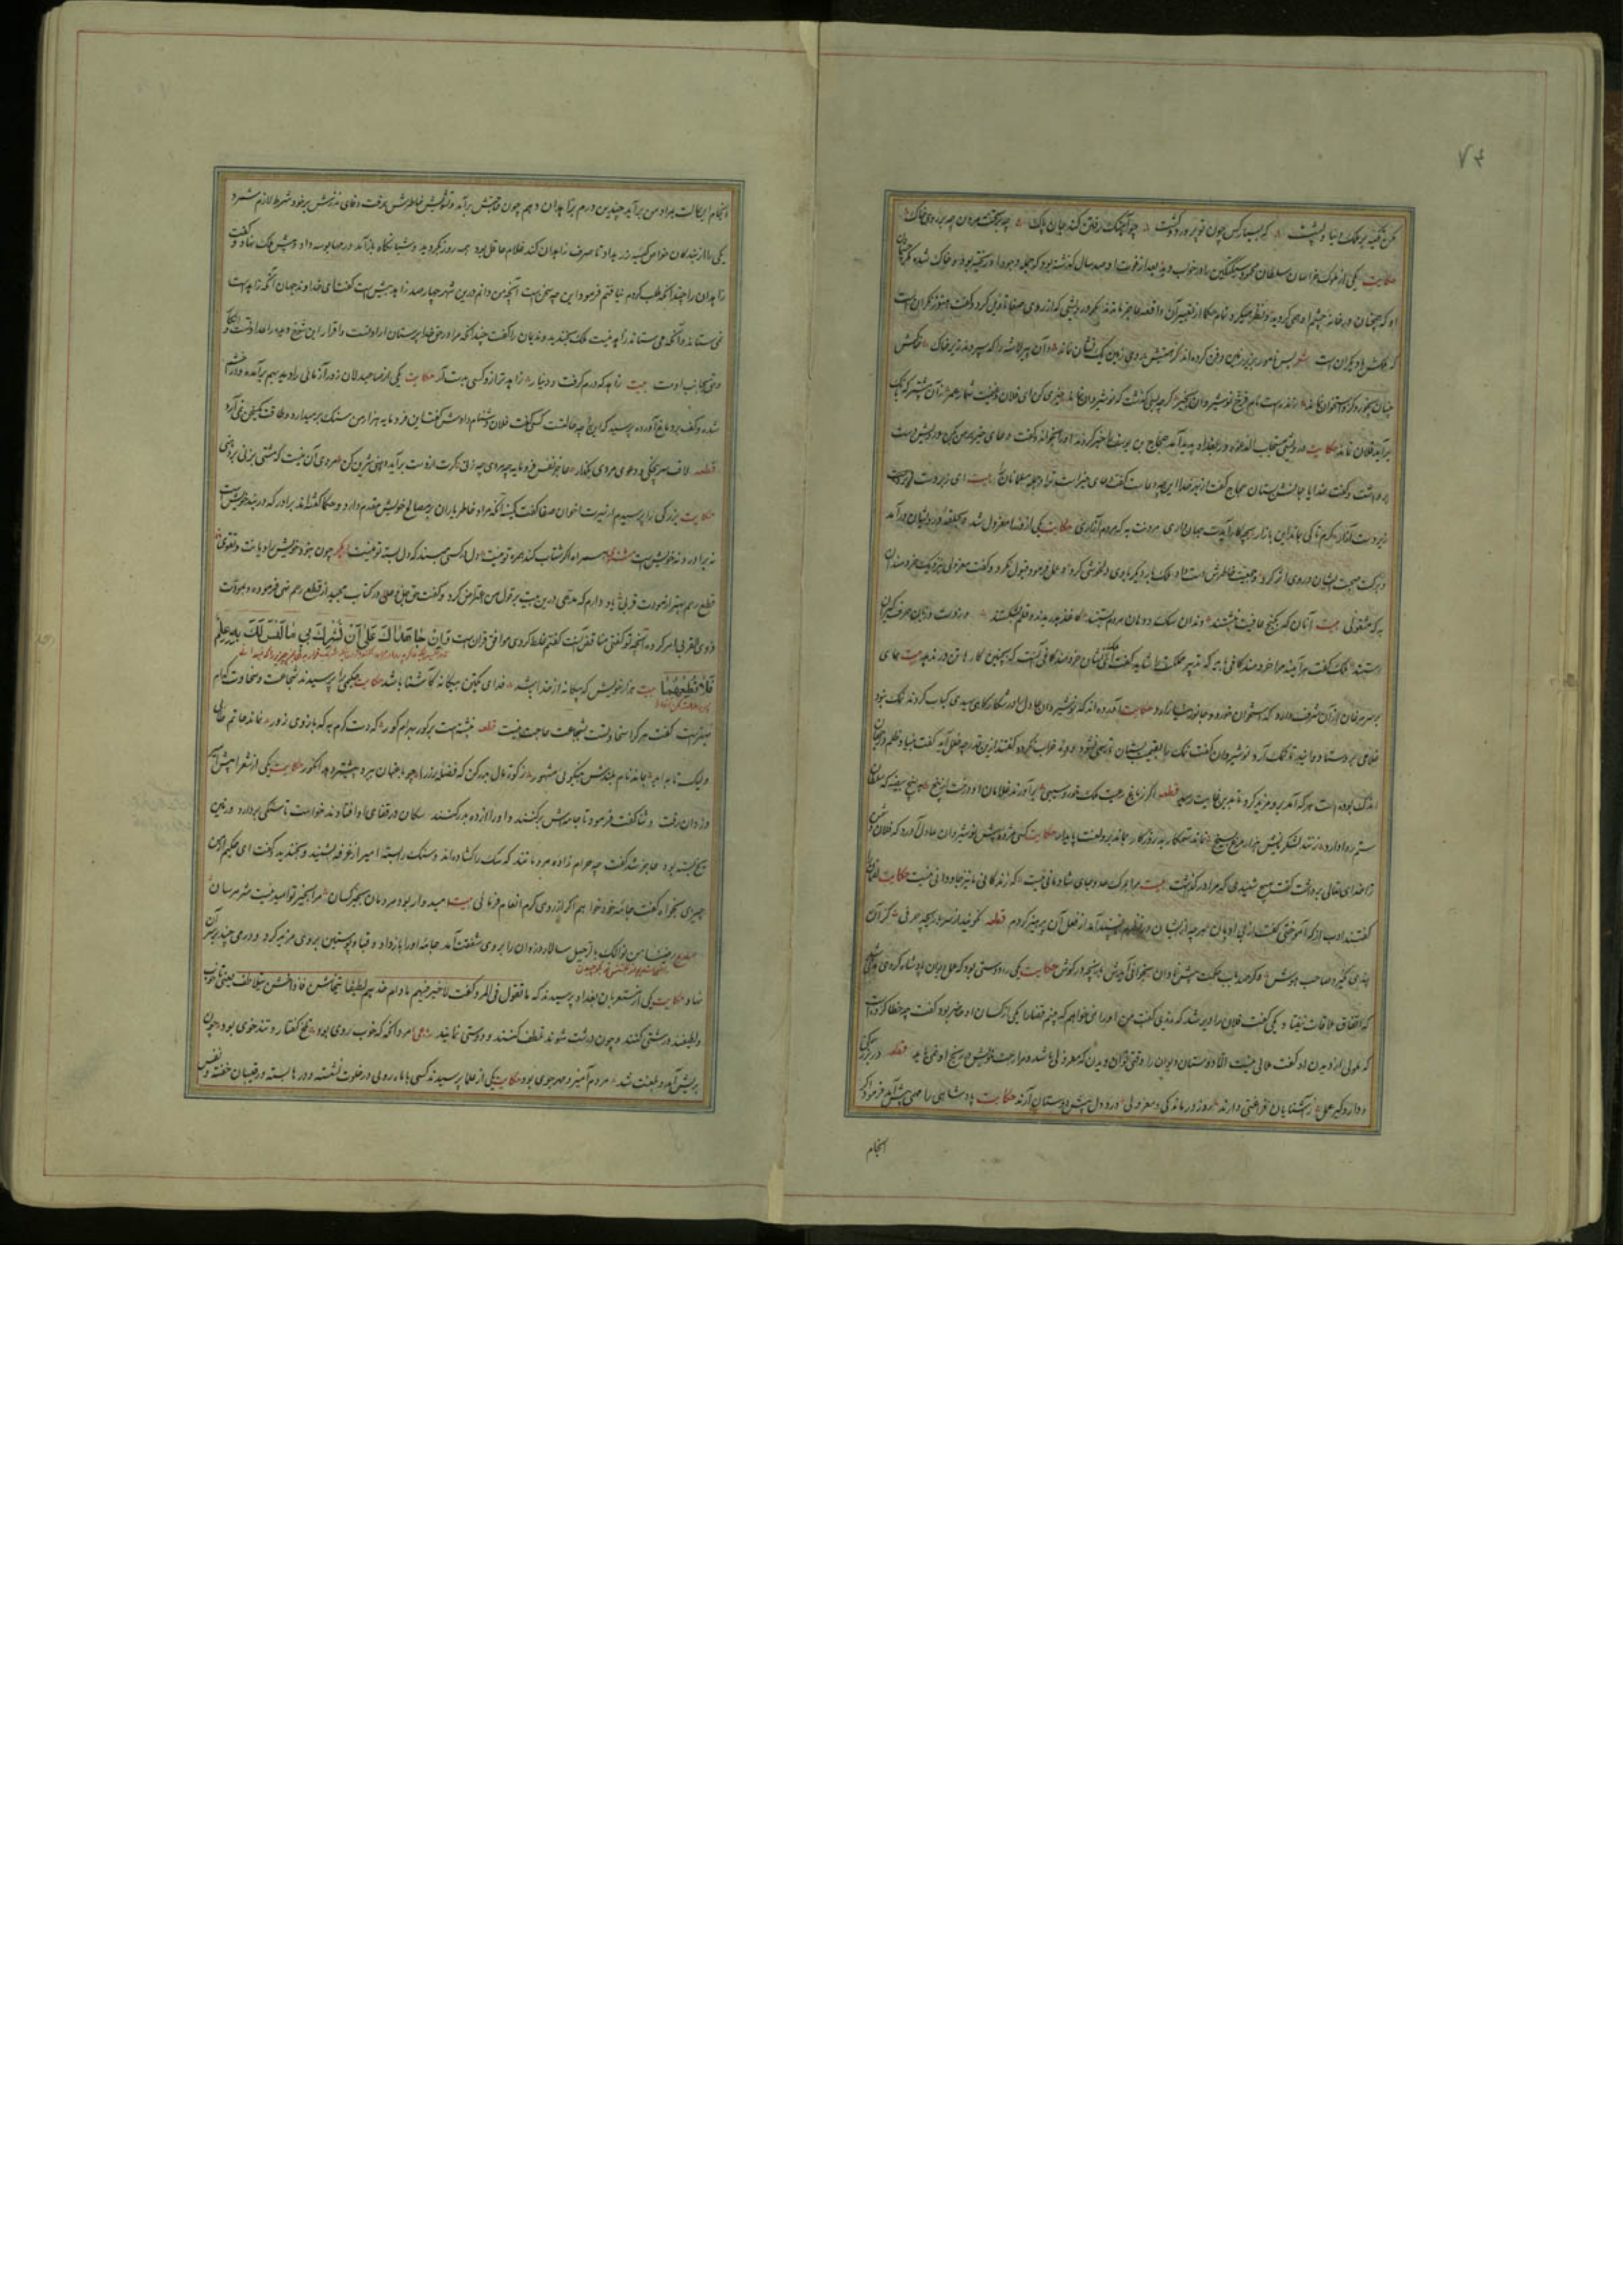 ۷۴
مکن تکیه بر ملک دنیا و پشت که بسیار کس چون تو پرورد و کشت چو آهنگ رفتن کند جان پاک چه بر تخت مردن چه بر روی خاک
حکایت یکی از ملوک خراسان سلطان محمود سبکتگین را در خواب دید بعد از فوت او صد سال گذشته بود که جمله وجود او ریخته بود و خاک شده مگر چشمان
او که همچنان در خانه چشم او همی گردید و نظر میکرد تمام حکما از تعبیر آن واقعه عاجز ماندند مگر درویشی که از روی صفا تاویل کرد و گفت هنوز نگران است
که ملکش با دیگران است شعر بس نامور بزیر زمین دفن کرده‌اند کز هستیش بروی زمین یک نشان نماند وان پیر لاشه را که سپردند زیر خاک خاکش
چنان بخورد کزو استخوان نماند زنده است نام فرخ نوشیروان بخیر گرچه بسی گذشت که نوشیروان نماند خیری کن ای فلان و غنیمت شمار عمر زان پیشتر که بانگ
برآید فلان نماند حکایت درویشی مستجاب الدعوه در بغداد پدید آمد حجاج بن یوسف را خبر کردند او را بخواند و گفت دعای خیر بر من بکن درویش دست
برداشت و گفت خدایا جانش بستان حجاج گفت از بهر خدا این چه دعا است گفت دعای خیر است ترا و جمله مسلمانان را بیت ای زبردست زیردست
آزار گرم تا کی بماند این بازار بچه کار آیدت جهانداری مردنت به که مردم آزاری حکایت یکی از وزرا معزول شد و بحلقه درویشان درآمد
و برکت صحبت ایشان در وی اثر کرد و جمعیت خاطرش دست داد ملک بار دیگر با وی دلخوشی کرد و عمل فرمود قبول نکرد و گفت معزولی نزدیک خردمندان
به که مشغولی بیت آنان که بکنج عافیت بنشستند دندان سگ و دهان مردم بستند کاغذ بدریدند و قلم بشکستند وز دست و زبان حرف گیران
رستند ملک گفت هر آینه مرا خردمند کافی باید که تدبیر مملکت را شاید گفت نشان خردمند کافی آنست که بچنین کارها تن در ندهد بیت همای
بر سر مرغان از آن شرف دارد که استخوان خورد و جانور نیازارد حکایت آورده‌اند که نوشیروان عادل در شکارگاهی صیدی کباب کردند نمک نبود
غلامی بروستا دوانید تا نمک آرد نوشیروان گفت نمک بقیمت بستان تا رسمی نشود و ده خراب نگردد گفتند ازین قدر چه خلل آید گفت بنیاد ظلم در جهان
اندک بوده است هر که آمد برو مزید کرد تا بدین غایت رسید قطعه اگر ز باغ رعیت ملک خورد سیبی برآورند غلامان او درخت از بیخ به پنج بیضه که سلطان
ستم روا دارد زنند لشکریانش هزار مرغ بسیخ نماند ستمکار بد روزگار بماند برو لعنت پایدار حکایت کسی مژده پیش نوشیروان عادل آورد که فلان دشمن
ترا خدای تعالی برداشت گفت هیچ شنیدی که مرا درگذاشت بیت مرا بمرگ عدو جای شادمانی نیست که زندگانی ما نیز جاودانی نیست حکایت لقمان را
گفتند ادب از که آموختی گفت از بی ادبان هر چه از ایشان در نظرم ناپسند آمد از فعل آن پرهیز کردم قطعه نگویند از سر بازیچه حرفی کز آن
پندی نگیرد صاحب هوش وگر صد باب حکمت پیش نادان بخوانی آیدش بازیچه در گوش حکایت یکی را دوستی بود که عمل دیوان پادشاه کردی مدتی
که اتفاق ملاقات نیفتاد یکی گفت فلان را دیر شد که ندیدی گفت من او را نمی‌خواهم که بینم قضا را یکی از کسان او حاضر بود گفت چه خطا کرده است
که ملولی از دیدن او گفت ملالی نیست اما دوستان دیوان را وقتی توان دیدن که معزول باشند و مرا راحت خویش در رنج او نمی باید قطعه در بزرگی
و دار و گیر عمل ز آشنایان فراغتی دارند روز درماندگی و معزولی درد دل پیش دوستان آرند حکایت پادشاهی را مهمی پیش آمد فرمود اگر
انجام
انجام این حالت بمراد من برآید چندین درم بزاهدان دهم چون حاجتش برآمد و تشویش خاطرش برفت وفای نذرش بوجود شرط لازم شمرد
یکی را از بندگان خاص کیسه زر بداد تا صرف زاهدان کند غلام عاقل بود همه روز بگردید و شبانگاه بازآمد درمها بوسه داد و پیش ملک نهاد و گفت
زاهدان را چندانکه طلب کردم نیافتم فرمود این چه سخن است آنچه من دانم درین شهر چهارصد زاهد بیش است گفت ای خداوند جهان آنکه زاهد است
نمی‌ستاند و آنکه می ستاند زاهد نیست ملک بخندید و ندیمان را گفت چندانکه مرا در حق خداپرستان ارادتست و اقرار این شوخ دیده را عداوتست و انکار
و حق بجانب اوست بیت زاهد که درم گرفت و دینار زاهدتر ازو کسی بدست آر حکایت یکی از صاحبدلان زورآزمائی را دید بهم برآمده و در خشم
شده و کف بر دماغ آورده پرسید که این را چه حالتست کسی گفت فلان دشنام دادش گفت این فرومایه هزار من سنگ برمیدارد و طاقت یک سخن نمی آرد
قطعه لاف سرپنجگی و دعوی مردی بگذار عاجز نفس فرومایه چه مردی چه زنی گرت از دست برآید دهنی شیرین کن مردی آن نیست که مشتی بزنی بر دهنی
حکایت بزرگی را پرسیدم از سیرت اخوان صفا گفت کمینه آنکه مراد خاطر یاران بر مصالح خویش مقدم دارد و حکما گفته‌اند برادر که در بند خویش است
نه برادر و نه خویش است همراه اگر شتاب کند همره تو نیست دل در کسی مبند که دل بسته تو نیست دیگر چون نبود خویش را دیانت و تقوی
قطع رحم بهتر از مودت قربی یاد دارم که مدعی درین بیت بر قول من اعتراض کرد و گفت حق جل و علی در کتاب مجید از قطع رحم نهی فرموده و بمودت
ذوی القربی امر کرده آنچه تو گفتی مناقض آنست گفتم غلط کردی موافق قران است وَاِنْ جَاهَدَاكَ عَلٰی اَنْ تُشْرِكَ بِی مَا لَیْسَ لَكَ بِهِ عِلْمٌ
فَلَا تُطِعْهُمَا بیت هزار خویش که بیگانه از خدا باشد فدای یکتن بیگانه کآشنا باشد حکایت حکیمی را پرسیدند شجاعت و سخاوت کدام
بهتر است گفت هر کرا سخاوتست بشجاعت حاجت نیست قطعه نبشته است بر گور بهرام گور که دست کرم به که بازوی زور نماند حاتم طائی
ولیک تا بابد بماند نام بلندش بنیکوئی مشهور زکوة مال بدر کن که فضله رز را چو باغبان ببرد بیشتر دهد انگور حکایت یکی از شعرا پیش امیر
دزدان رفت و ثنا گفت فرمود تا جامه‌اش برکنند و او را از ده بدر کنند سگان در قفای او افتادند خواست تا سنگی بردارد و زمین
یخ بسته بود عاجز شد گفت چه حرام زاده مردمانند که سگ را گشاده‌اند و سنگ را بسته امیر از غرفه بشنید و بخندید گفت ای حکیم از من
چیزی بخواه گفت جامه خود خواهم اگر از روی کرم انعام فرمائی بیت امیدوار بود مردمان بخیر کسان مرا بخیر تو امید نیست شر مرسان
مصرع رضینا من نوالک بالرحیل سالار دزدان را بر وی شفقت آمد جامه او را باز داد و قبا پوستین بر وی مزید کرد و درمی چند بر آن
نهاد حکایت یکی از مستعربان بغداد پرسیدند که ما تقول فی المرد گفت لا خیر فیهم مادام احدهم لطیفا یتخاشن فاذا خشن یتلاطف یعنی تا خوب
و لطیفند درشتی کنند و چون درشت شوند تلطف کنند و دوستی نمایند رباعی امرد آنگه که خوب روی بود تلخ گفتار و تندخوی بود چون
بریش آمد و بلعنت شد مردم آمیز و مهرجوی بود حکایت یکی از علما پرسیدند کسی با ماه روئی در خلوت نشسته و درها بسته و رقیبان خفته و نفس